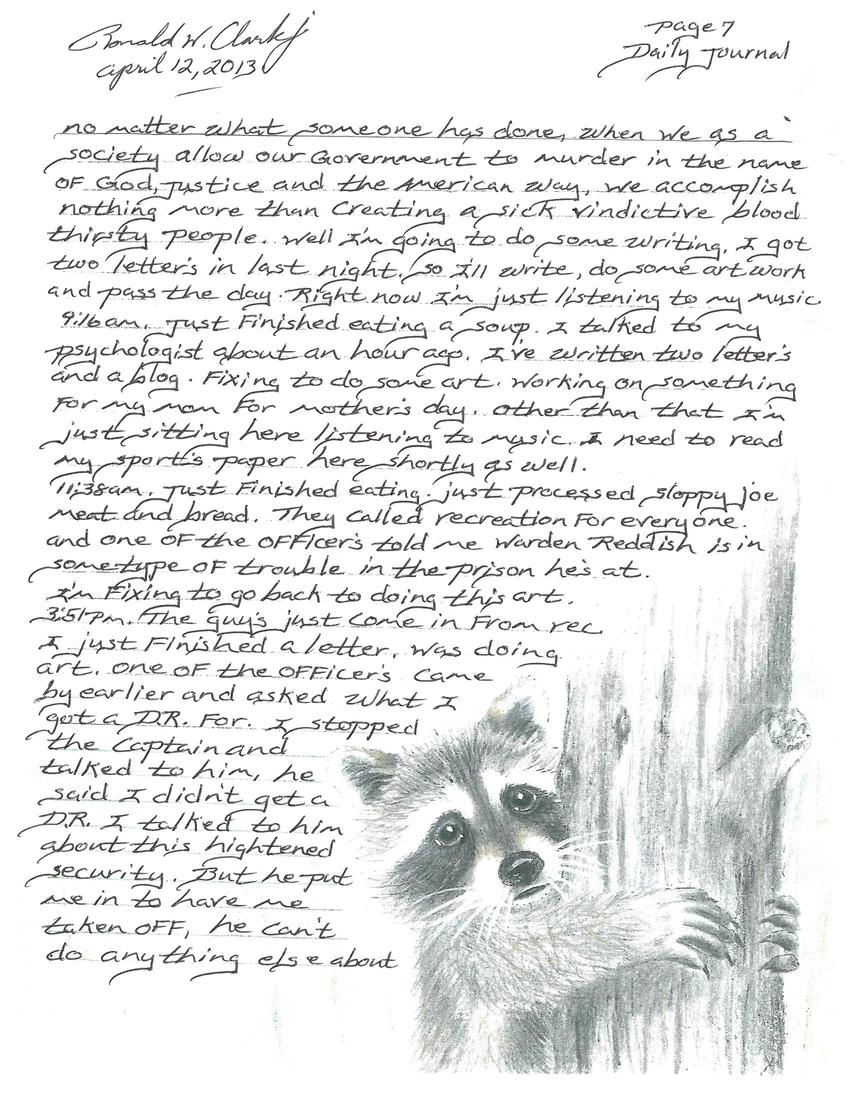 Ronald W. Clark Jr
April 12, 2013
Page 7
Daily Journal
no matter what someone has done, when we as a
society allow our Government to murder in the name
OF God, Justice and the American way, we accomplish
nothing more than creating a sick vindictive blood
thirsty people. Well I'm going to do some writing, I got
two letter's in last night. So I'll write, do some artwork
and pass the day. Right now I'm just listening to my music.
9:16am. Just Finished eating a soup. I talked to my
psychologist about an hour ago. I've written two letter's
and a blog. Fixing to do some art. Working on something
For my mom For mother's day. Other than that I'm
just sitting here listening to music. I need to read
my sport's paper here shortly as well.
11:38am. Just Finished eating. just processed sloppy joe
meat and bread. They called recreation For everyone.
and one OF the OFFicer's told me Warden Reddish is in
some type OF trouble in the prison he's at.
I'm Fixing to go back to doing this art.
3:51Pm. The guy's just come in From rec.
I just Finished a letter, was doing
art. One OF the OFFicer's came
by earlier and asked what I
got a D.R. For. I stopped
the Captain and
talked to him, he
said I didn't get a
D.R. I talked to him
about this hightened
security. But he put
me in to have me
taken OFF, he can't
do anything else about